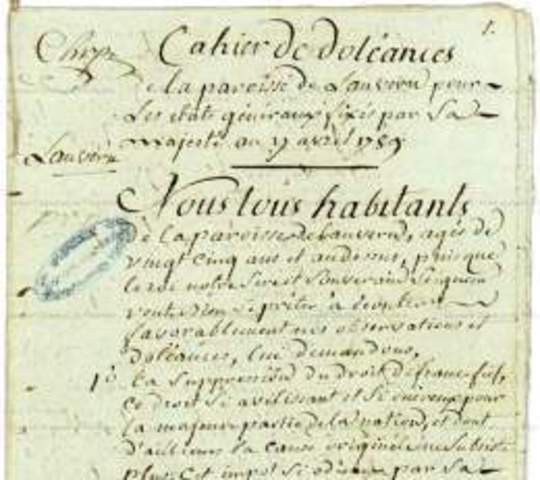 1.
Cahier de doléances
de la paroisse de Lanvern pour
Les états généraux fixés par Sa
Majesté au 27 avril 1789
Lanvern
Nous tous habitants
de la paroisse de Lanvern, agés de
vingt cinq ans et audessus, puisque
le roi notre Sire et Souverain Seigneur
veut bien Se prêter à écouter
favorablement nos observations et
doléances, lui demandons,
1º la Suppression du droit de franc fief,
ce droit Si avilissant et Si onéreux pour
la majeure partie de la nation, et dont
d'ailleurs la cause originelle ne Subsiste
plus. Cet impot Si odieux par Sa